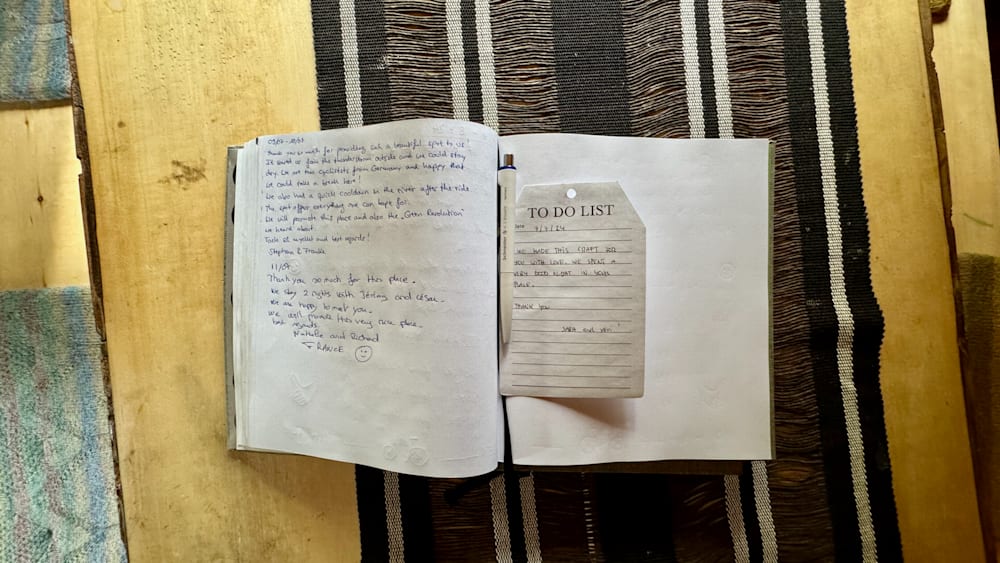 Thank you so much for providing such a beautiful spot to us!
It saved us from the thunderstorm outside and we could stay
dry. We are two cyclists from Germany and happy that
we could take a break here!
We also had a quick cooldown in the river after the ride
The spot offers everything one can hope for.
We will promote this place and also the "Green Revolution"
we heard about.
and best regards!
Stephan &
11/07
Thank you so much for this place.
We stay 2 nights with Jérémy and César.
We are happy to met you.
We will promote this very nice place.
best regards.
Nathalie and Richard
FRANCE
TO DO LIST
Date 7/7/24
WE MADE THIS CRAFT FOR
YOU WITH LOVE. WE SPENT A
VERY GOOD NIGHT IN YOUR
PLACE.
THANK YOU
SARA and